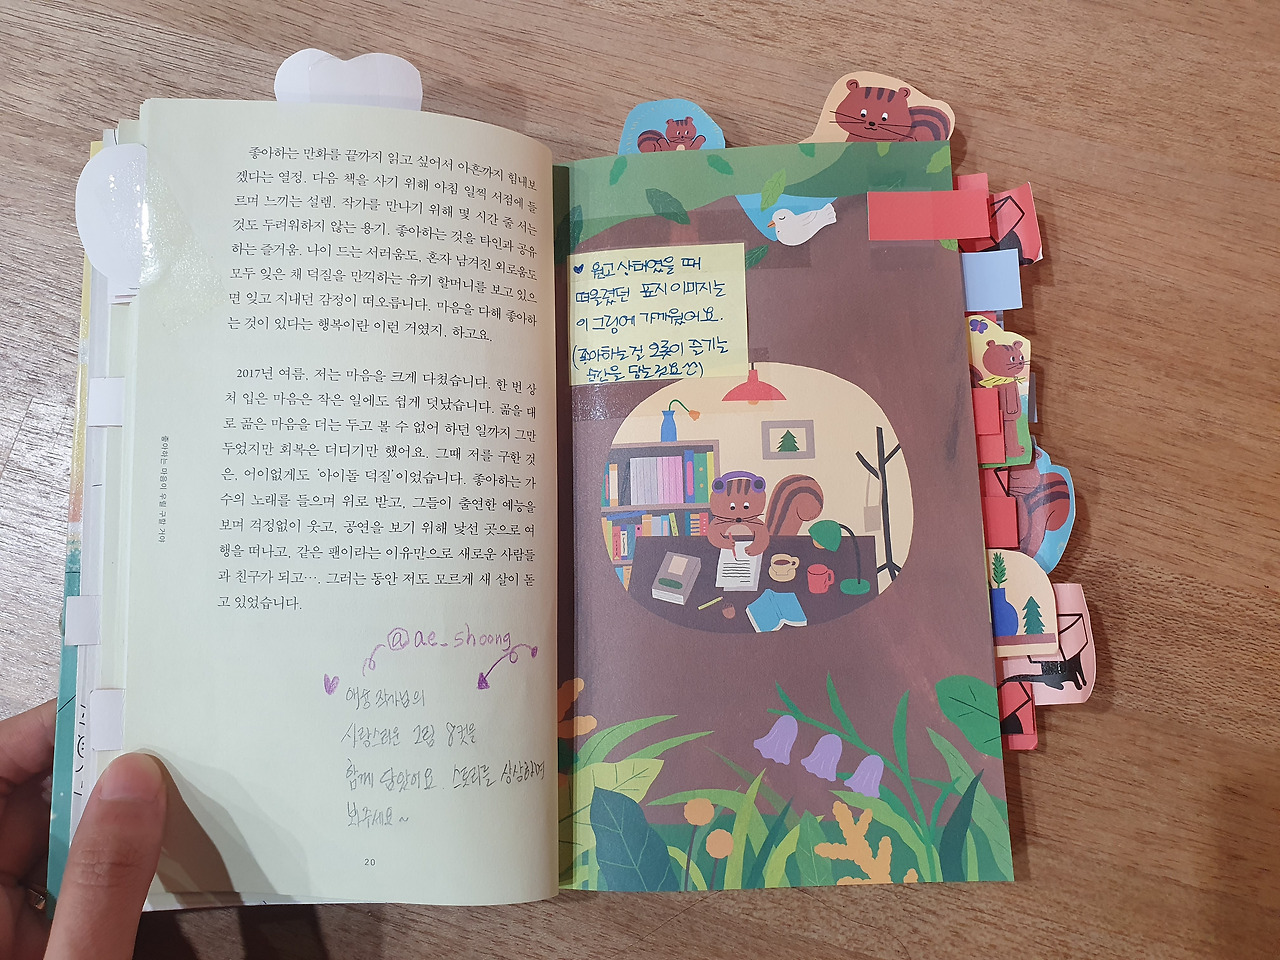 좋아하는 만화를 끝까지 읽고 싶어서 아흔까지 힘내보
겠다는 열정. 다음 책을 사기 위해 아침 일찍 서점에 들
르며 느끼는 설렘. 작가를 만나기 위해 몇 시간 줄 서는
것도 두려워하지 않는 용기. 좋아하는 것을 타인과 공유
하는 즐거움. 나이 드는 서러움도, 혼자 남겨진 외로움도
모두 잊은 채 덕질을 만끽하는 유키 할머니를 보고 있으
면 잊고 지내던 감정이 떠오릅니다. 마음을 다해 좋아하
는 것이 있다는 행복이란 이런 거였지, 하고요.
2017년 여름, 저는 마음을 크게 다쳤습니다. 한 번 상
처 입은 마음은 작은 일에도 쉽게 덧났습니다. 곪을 대
로 곪은 마음을 더는 두고 볼 수 없어 하던 일까지 그만
두었지만 회복은 더디기만 했어요. 그때 저를 구한 것
은, 어이없게도 ‘아이돌 덕질’이었습니다. 좋아하는 가
수의 노래를 들으며 위로 받고, 그들이 출연한 예능을
보며 걱정없이 웃고, 공연을 보기 위해 낯선 곳으로 여
행을 떠나고, 같은 팬이라는 이유만으로 새로운 사람들
과 친구가 되고…. 그러는 동안 저도 모르게 새 살이 돋
고 있었습니다.
좋아하는 마음이 우릴 구할 거야
@ae_shoong
애슝 작가님의
사랑스러운 그림 8컷을
함께 담았어요. 스토리를 상상하며
봐주세요~
20
♥ 원고 상태였을 때
떠올렸던 표지 이미지는
이 그림에 가까웠어요.
(좋아하는걸 오롯이 즐기는
순간을 담는거요^^)